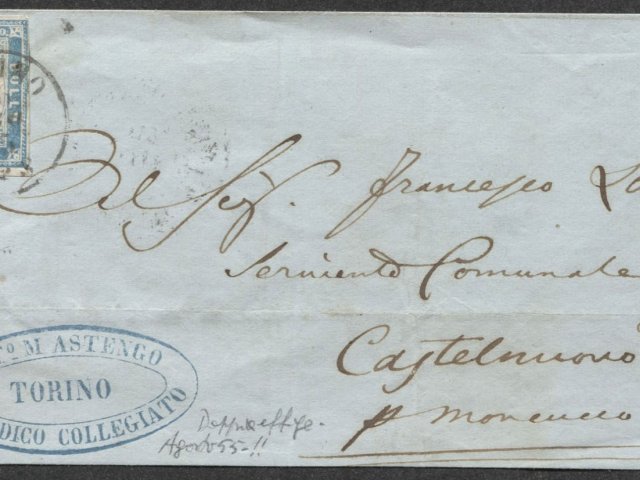 Al Sigr. Francesco
Serviente Comunale
Castelnuovo
p Moncucco
M ASTENGO
TORINO
DICO COLLEGIATO
Doppia effige.
Agosto 55-!!